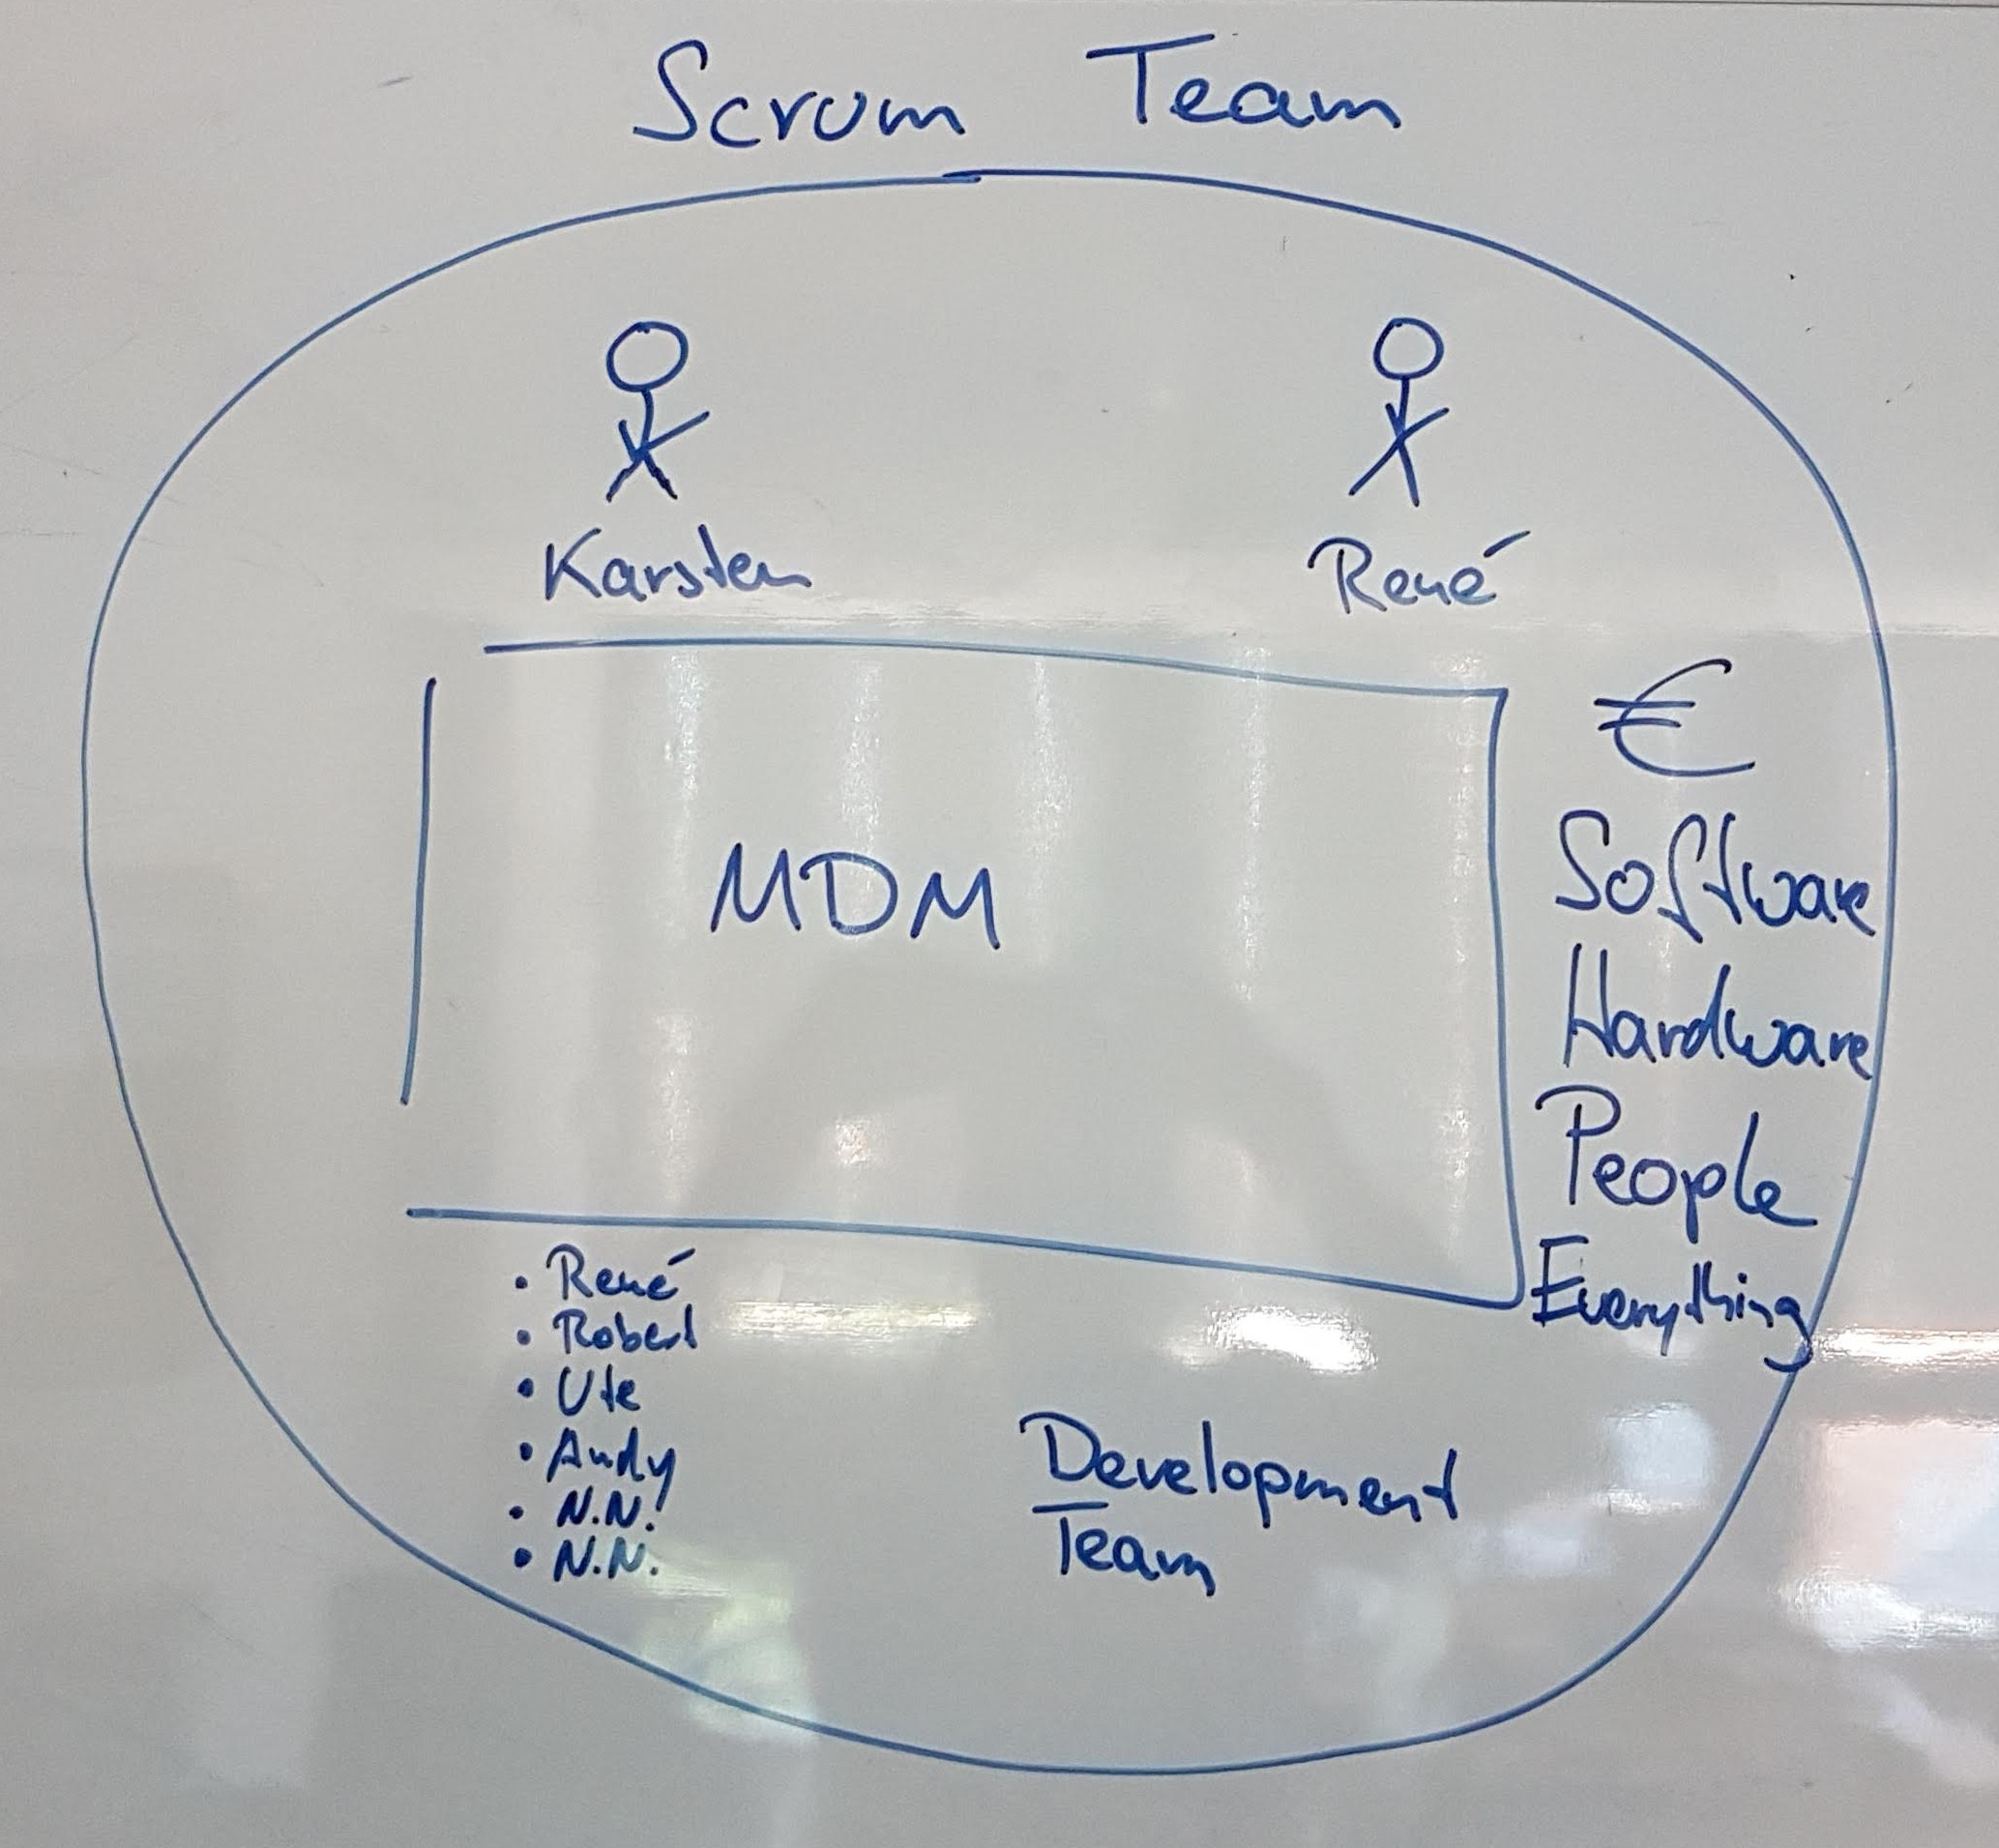 Scrum Team
Karsten René
€
Software
MDM
Hardware
People
Everything
• René
• Robert
• Ute
• Andy
• N.N.
• N.N.
Development
Team